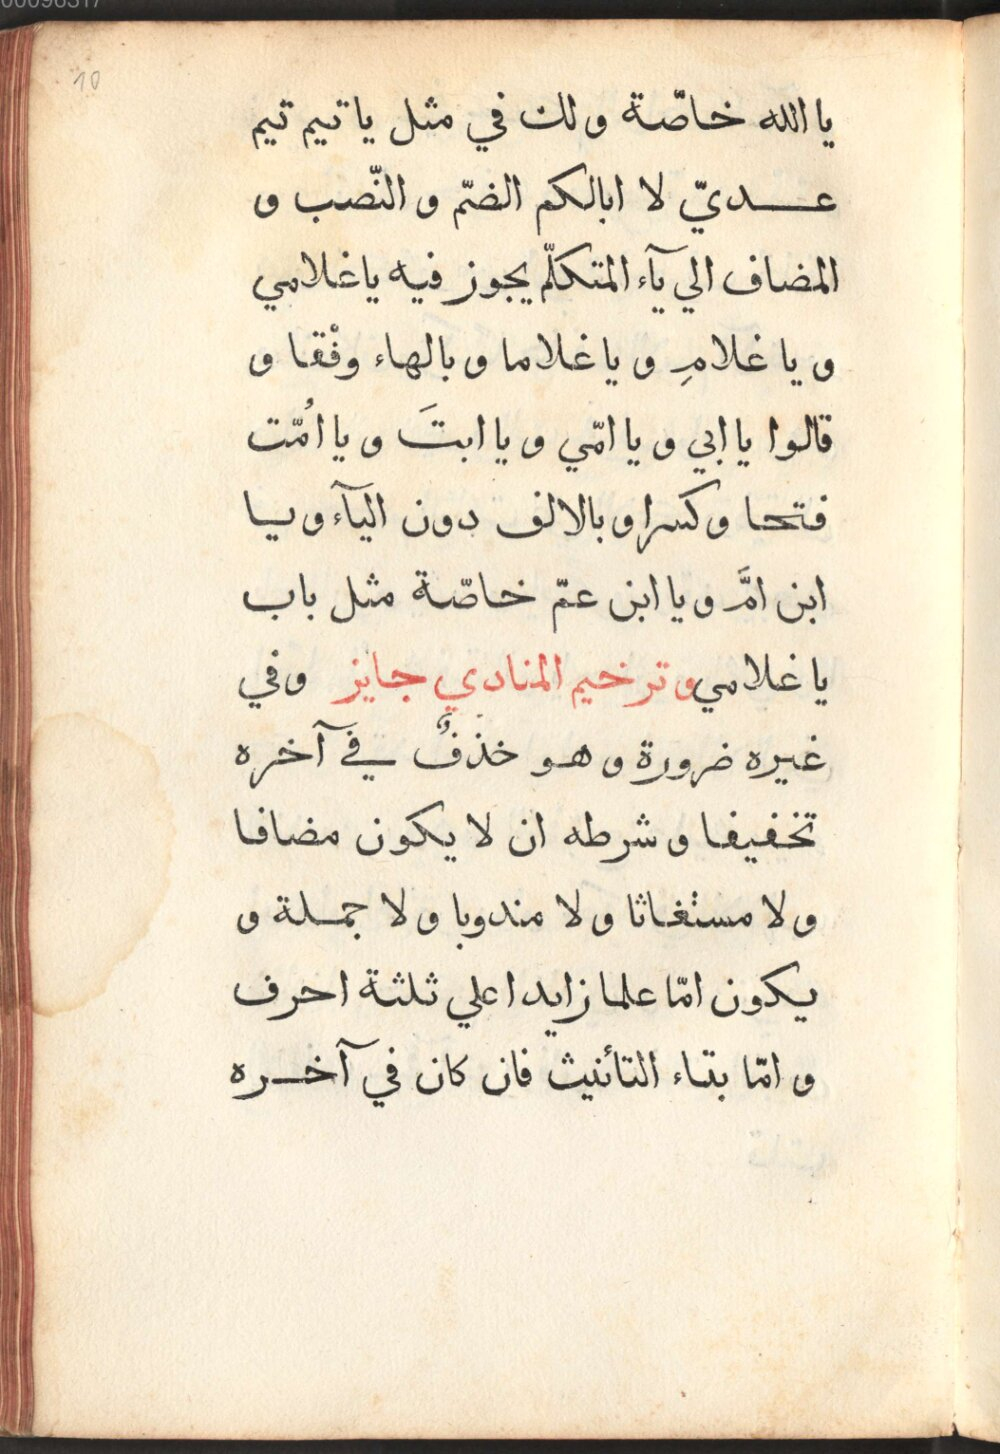 00090317
10
يا الله خاصّة ولك في مثل يا تيم تيم
عديّ لا ابالكم الضمّ و النّصب و
المضاف الي يآء المتكلّم يجوز فيه يا غلامي
و يا غلامِ و يا غلاما و بالهاء وفْقا و
قالوا يا ابي و يا امّي و يا ابتَ و يا اُمّت
فتحا و كسرا و بالالف دون اليآء و يا
ابن امَّ و يا ابن عمّ خاصّة مثل باب
يا غلامي و ترخيم المنادي جايز وفي
غيره ضرورة و هو خذفٌ في آخره
تخفيفا و شرطه ان لا يكون مضافا
و لا مستغاثا و لا مندوبا و لا جملة و
يكون امّا علما زايدا علي ثلثة احرف
و امّا بتاء التأنيث فان كان في آخره